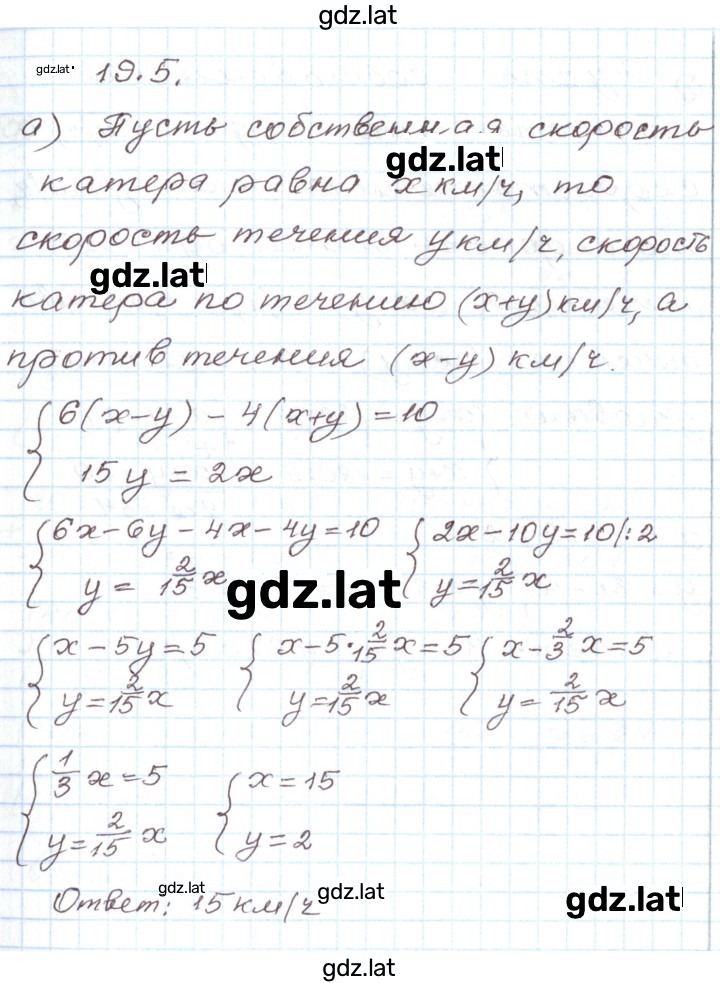 gdz.lat
gdz.lat 19.5.
а) Пусть собственная скорость
gdz.lat
катера равна x км/ч, то
скорость течения y км/ч, скорость
gdz.lat
катера по течению (x+y) км/ч, а
против течения (x-y) км/ч.
{ 6(x-y) - 4(x+y) = 10
15y = 2x
{ 6x-6y-4x-4y=10 { 2x-10y=10 |:2
y = 2/15 x y = 2/15 x
gdz.lat
{ x-5y=5 { x-5·2/15 x=5 { x-2/3 x=5
y=2/15 x y=2/15 x y=2/15 x
{ 1/3 x=5 { x=15
y=2/15 x y=2
Ответ: 15 км/ч
gdz.lat gdz.lat gdz.lat
gdz.lat